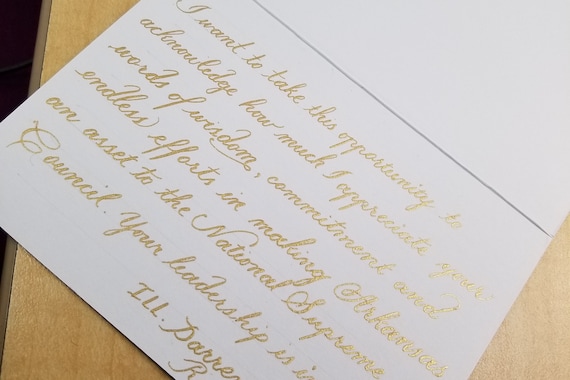 I want to take this opportunity to
acknowledge how much I appreciate your
words of wisdom, commitment and
endless efforts in making Arkansas
an asset to the National Supreme
Council. Your leadership is
Ill.